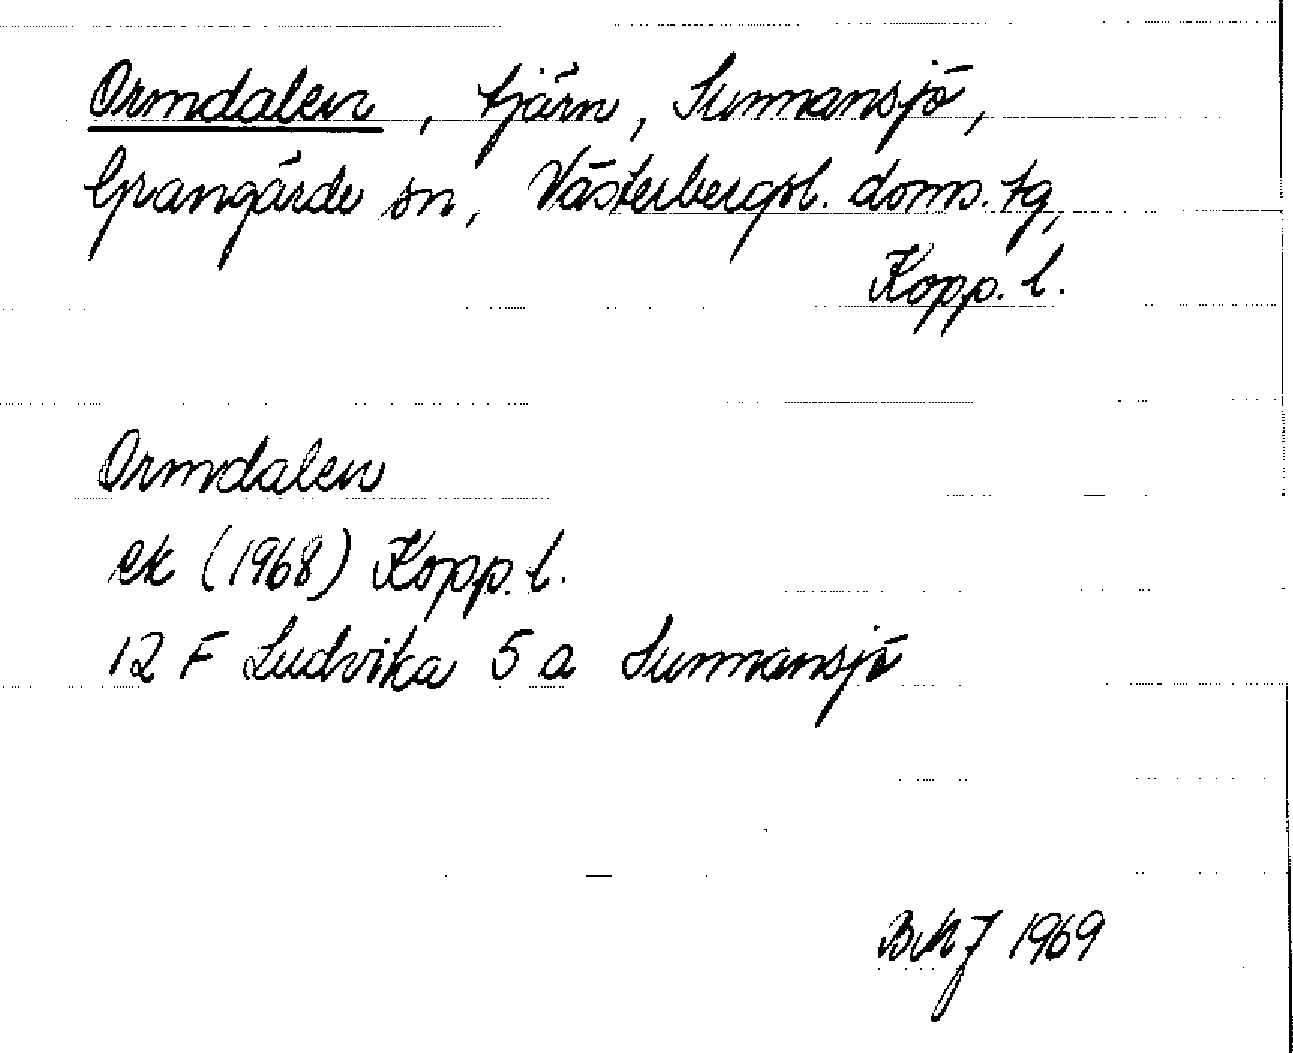 Ormdalen, tjärn, Sunnansjö,
Grangärde sn, Västerbergsl. doms. tg,
Kopp. l.
Ormdalen
ek (1968) Kopp. l.
12 F Ludvika 5 a Sunnansjö
BMJ 1969